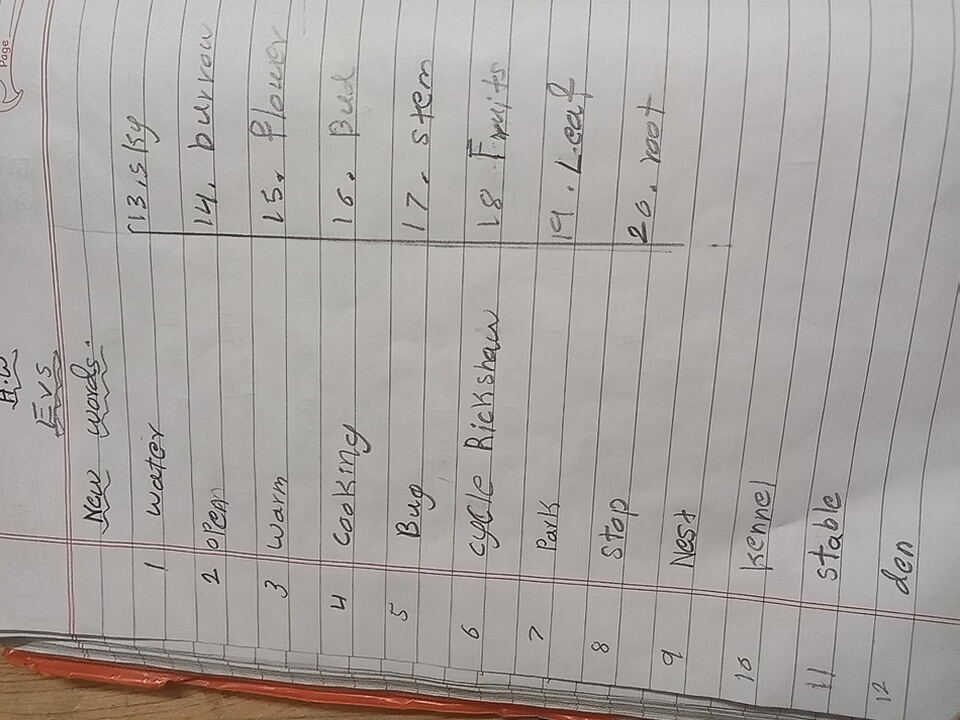 Page
H.W
Evs
New words.
1 water
2 open
3 warm
4 cooking
5 Bug
6 cycle Rickshaw
7 Park
8 Stop
9 Nest
10 kennel
11 stable
12 den
13. sky
14. burrow
15. flower
16. Bud
17. stem
18 Fruits
19. Leaf
20. root